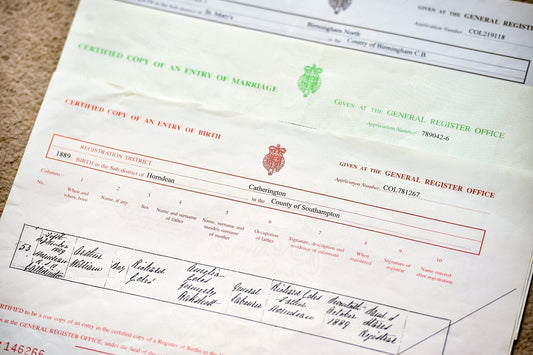 GIVEN AT THE GENERAL REGISTER OFFICE
Application Number COL219118
St. Mary's
Birmingham North
in the County of Birmingham C.B.
CERTIFIED COPY OF AN ENTRY OF MARRIAGE
GIVEN AT THE GENERAL REGISTER OFFICE
Application Number 789042-6
CERTIFIED COPY OF AN ENTRY OF BIRTH
GIVEN AT THE GENERAL REGISTER OFFICE
Application Number COL781267
REGISTRATION DISTRICT Catherington
1889 BIRTH in the Sub-district of Horndean in the County of Southampton
Columns:- 1 2 3 4 5 6 7 8 9 10
No. When and where born Name, if any Sex Name and surname of father Name, surname and maiden surname of mother Occupation of father Signature, description and residence of informant When registered Signature of registrar Name entered after registration
53 September 1889 Horndean Arthur William Boy Richard formerly General Labourer Richard Father Horndean October 1889 Registrar
CERTIFIED to be a true copy of an entry in the certified copy of a Register of Births in the
at the GENERAL REGISTER OFFICE, under the Seal of the
146266